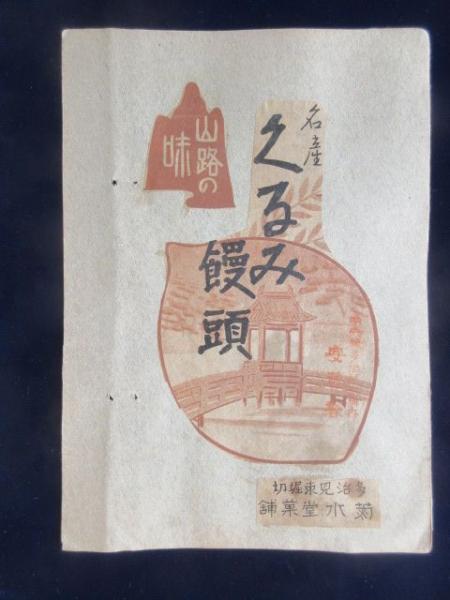 名産
くるみ
饅頭
山路の
味
多治見東堀切
菊水堂菓舗